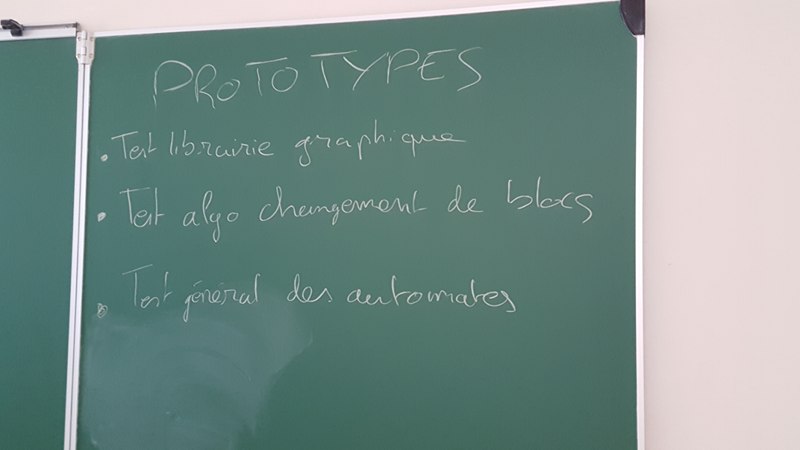 PROTOTYPES
• Test librairie graphique
• Test algo changement de blocs
• Test général des automates